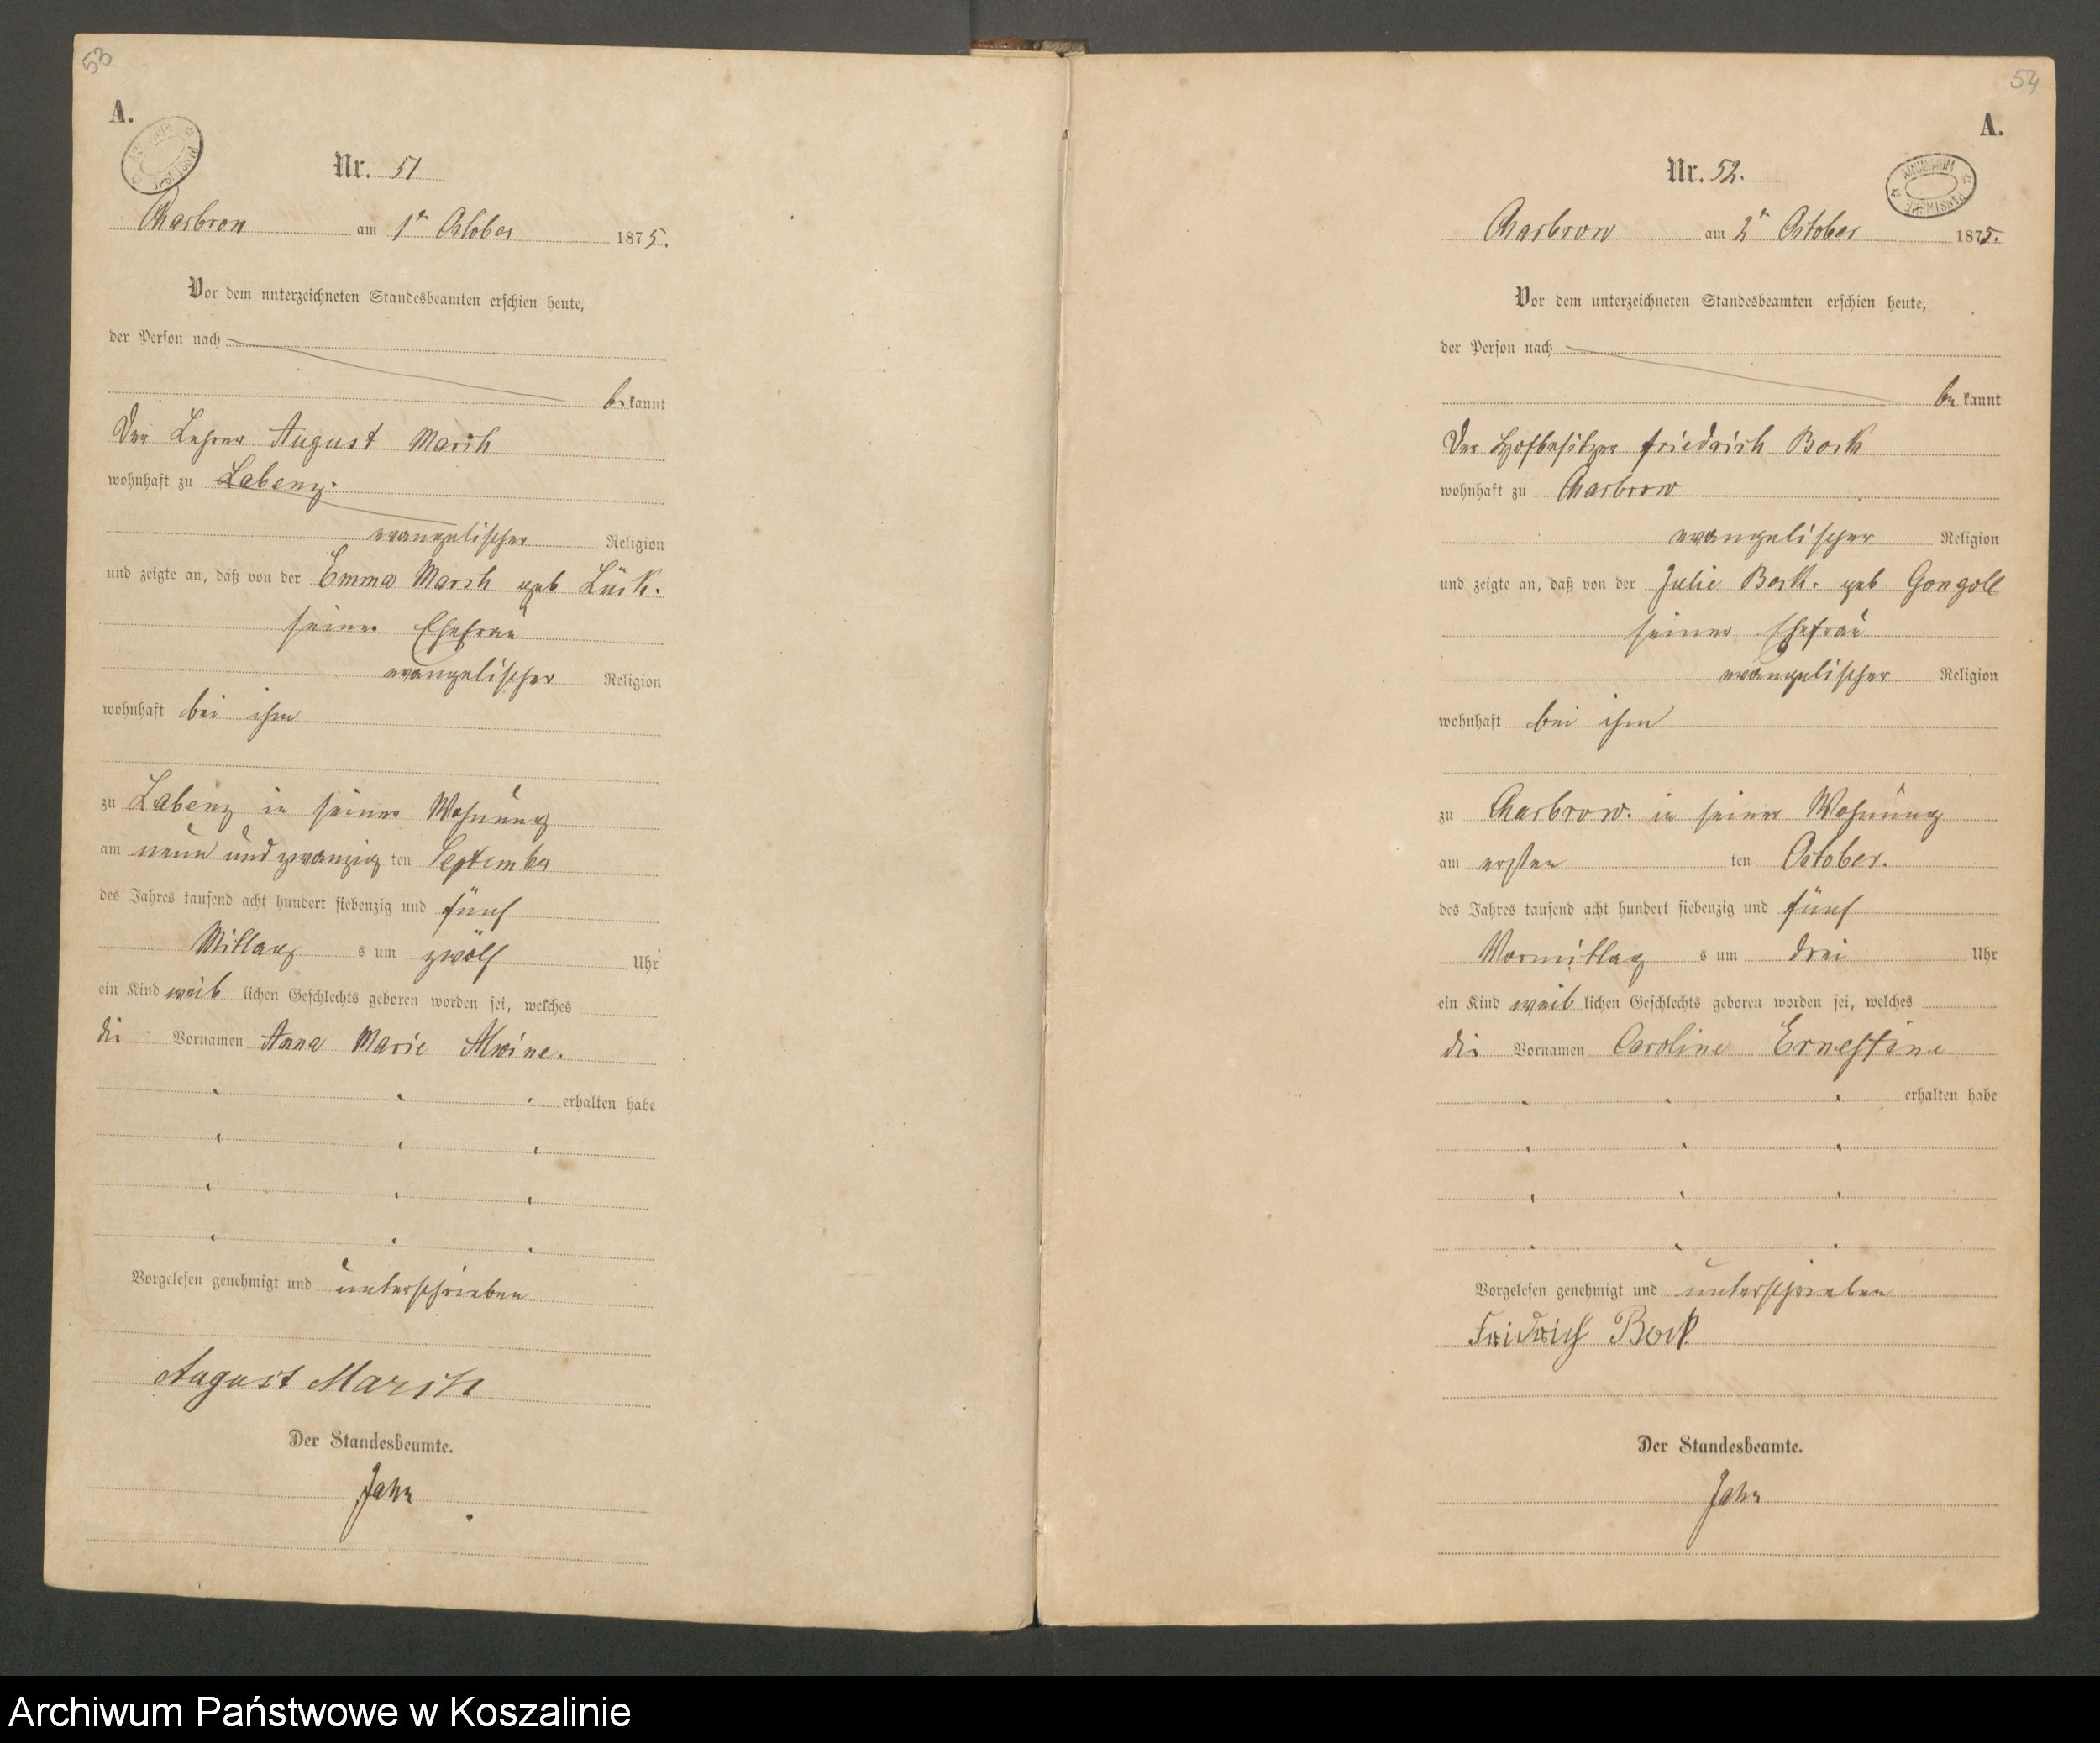 53
A.
Nr. 51
Charbrow am 1ten October 1875.
Vor dem unterzeichneten Standesbeamten erschien heute,
der Person nach
be kannt
Der Lehrer August Marsh
wohnhaft zu Labenz.
evangelischer Religion
und zeigte an, daß von der Emma Marsh geb Lück.
seiner Ehefrau
evangelischer Religion
wohnhaft bei ihm
zu Labenz in seiner Wohnung
am neun und zwanzig ten September
des Jahres tausend acht hundert siebenzig und fünf
Mittag s um zwölf Uhr
ein Kind weib lichen Geschlechts geboren worden sei, welches
die Vornamen Anna Marie Alwine.
erhalten habe
Vorgelesen genehmigt und unterschrieben
August
Der Standesbeamte.
Jahn
54
A.
ARCHIWUM
PAŃSTWOWE
Nr. 52.
Charbrow am 2ten October 1875.
Vor dem unterzeichneten Standesbeamten erschien heute,
der Person nach
be kannt
Der Hofbesitzer Friedrich Bock
wohnhaft zu Charbrow
evangelischer Religion
und zeigte an, daß von der Julie Bock. geb Gongoll
seiner Ehefrau
evangelischer Religion
wohnhaft bei ihm
zu Charbrow. in seiner Wohnung
am ersten ten October.
des Jahres tausend acht hundert siebenzig und fünf
Vormittag s um drei Uhr
ein Kind weib lichen Geschlechts geboren worden sei, welches
die Vornamen Caroline Ernestine
erhalten habe
Vorgelesen genehmigt und unterschrieben
Fridrich Bock
Der Standesbeamte.
Jahn
Archiwum Państwowe w Koszalinie